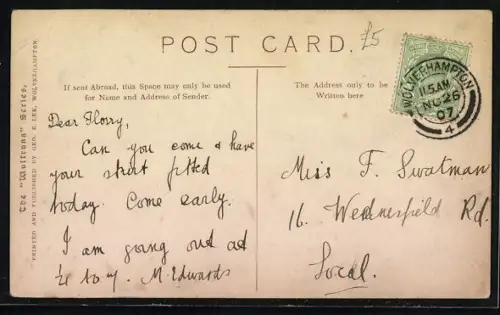 POST CARD.
£5
If sent Abroad, this Space may only be used
for Name and Address of Sender.
The Address only to be
Written here
The "Wulfruna" Series.
PRINTED AND PUBLISHED BY GEO. E. LEE, WOLVERHAMPTON
WOLVERHAMPTON
11.5AM
NO 26
07
4
Dear Florry,
Can you come & have
your skirt fitted
today. Come early.
I am going out at
¼ to 7. M. Edwards
Miss F. Swatman
16. Wednesfield Rd.
Local.